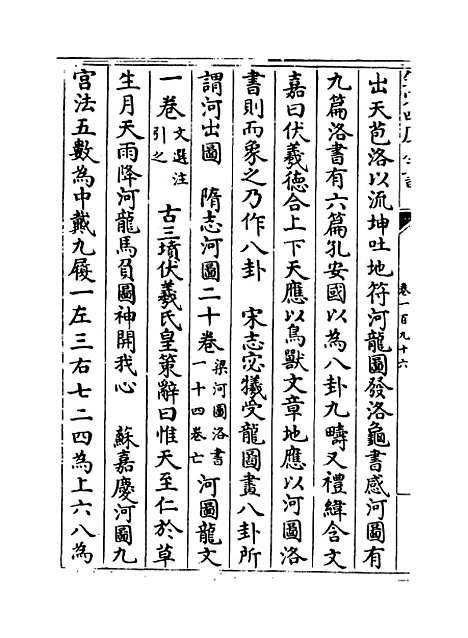 卷一百九十六
出天苞洛以流坤吐地符河龍圖發洛龜書感河圖有
九篇洛書有六篇孔安國以為八卦九疇又禮緯含文
嘉曰伏羲德合上下天應以鳥獸文章地應以河圖洛
書則而象之乃作八卦　宋志宓犧受龍圖畫八卦所
謂河出圖　隋志河圖二十卷梁河圖洛書一十四卷亡　河圖龍文
一卷文選注引之　古三墳伏羲氏皇策辭曰惟天至仁於草
生月天雨降河龍馬負圖神開我心　蘇嘉慶河圖九
宮法五數為中戴九履一左三右七二四為上六八為